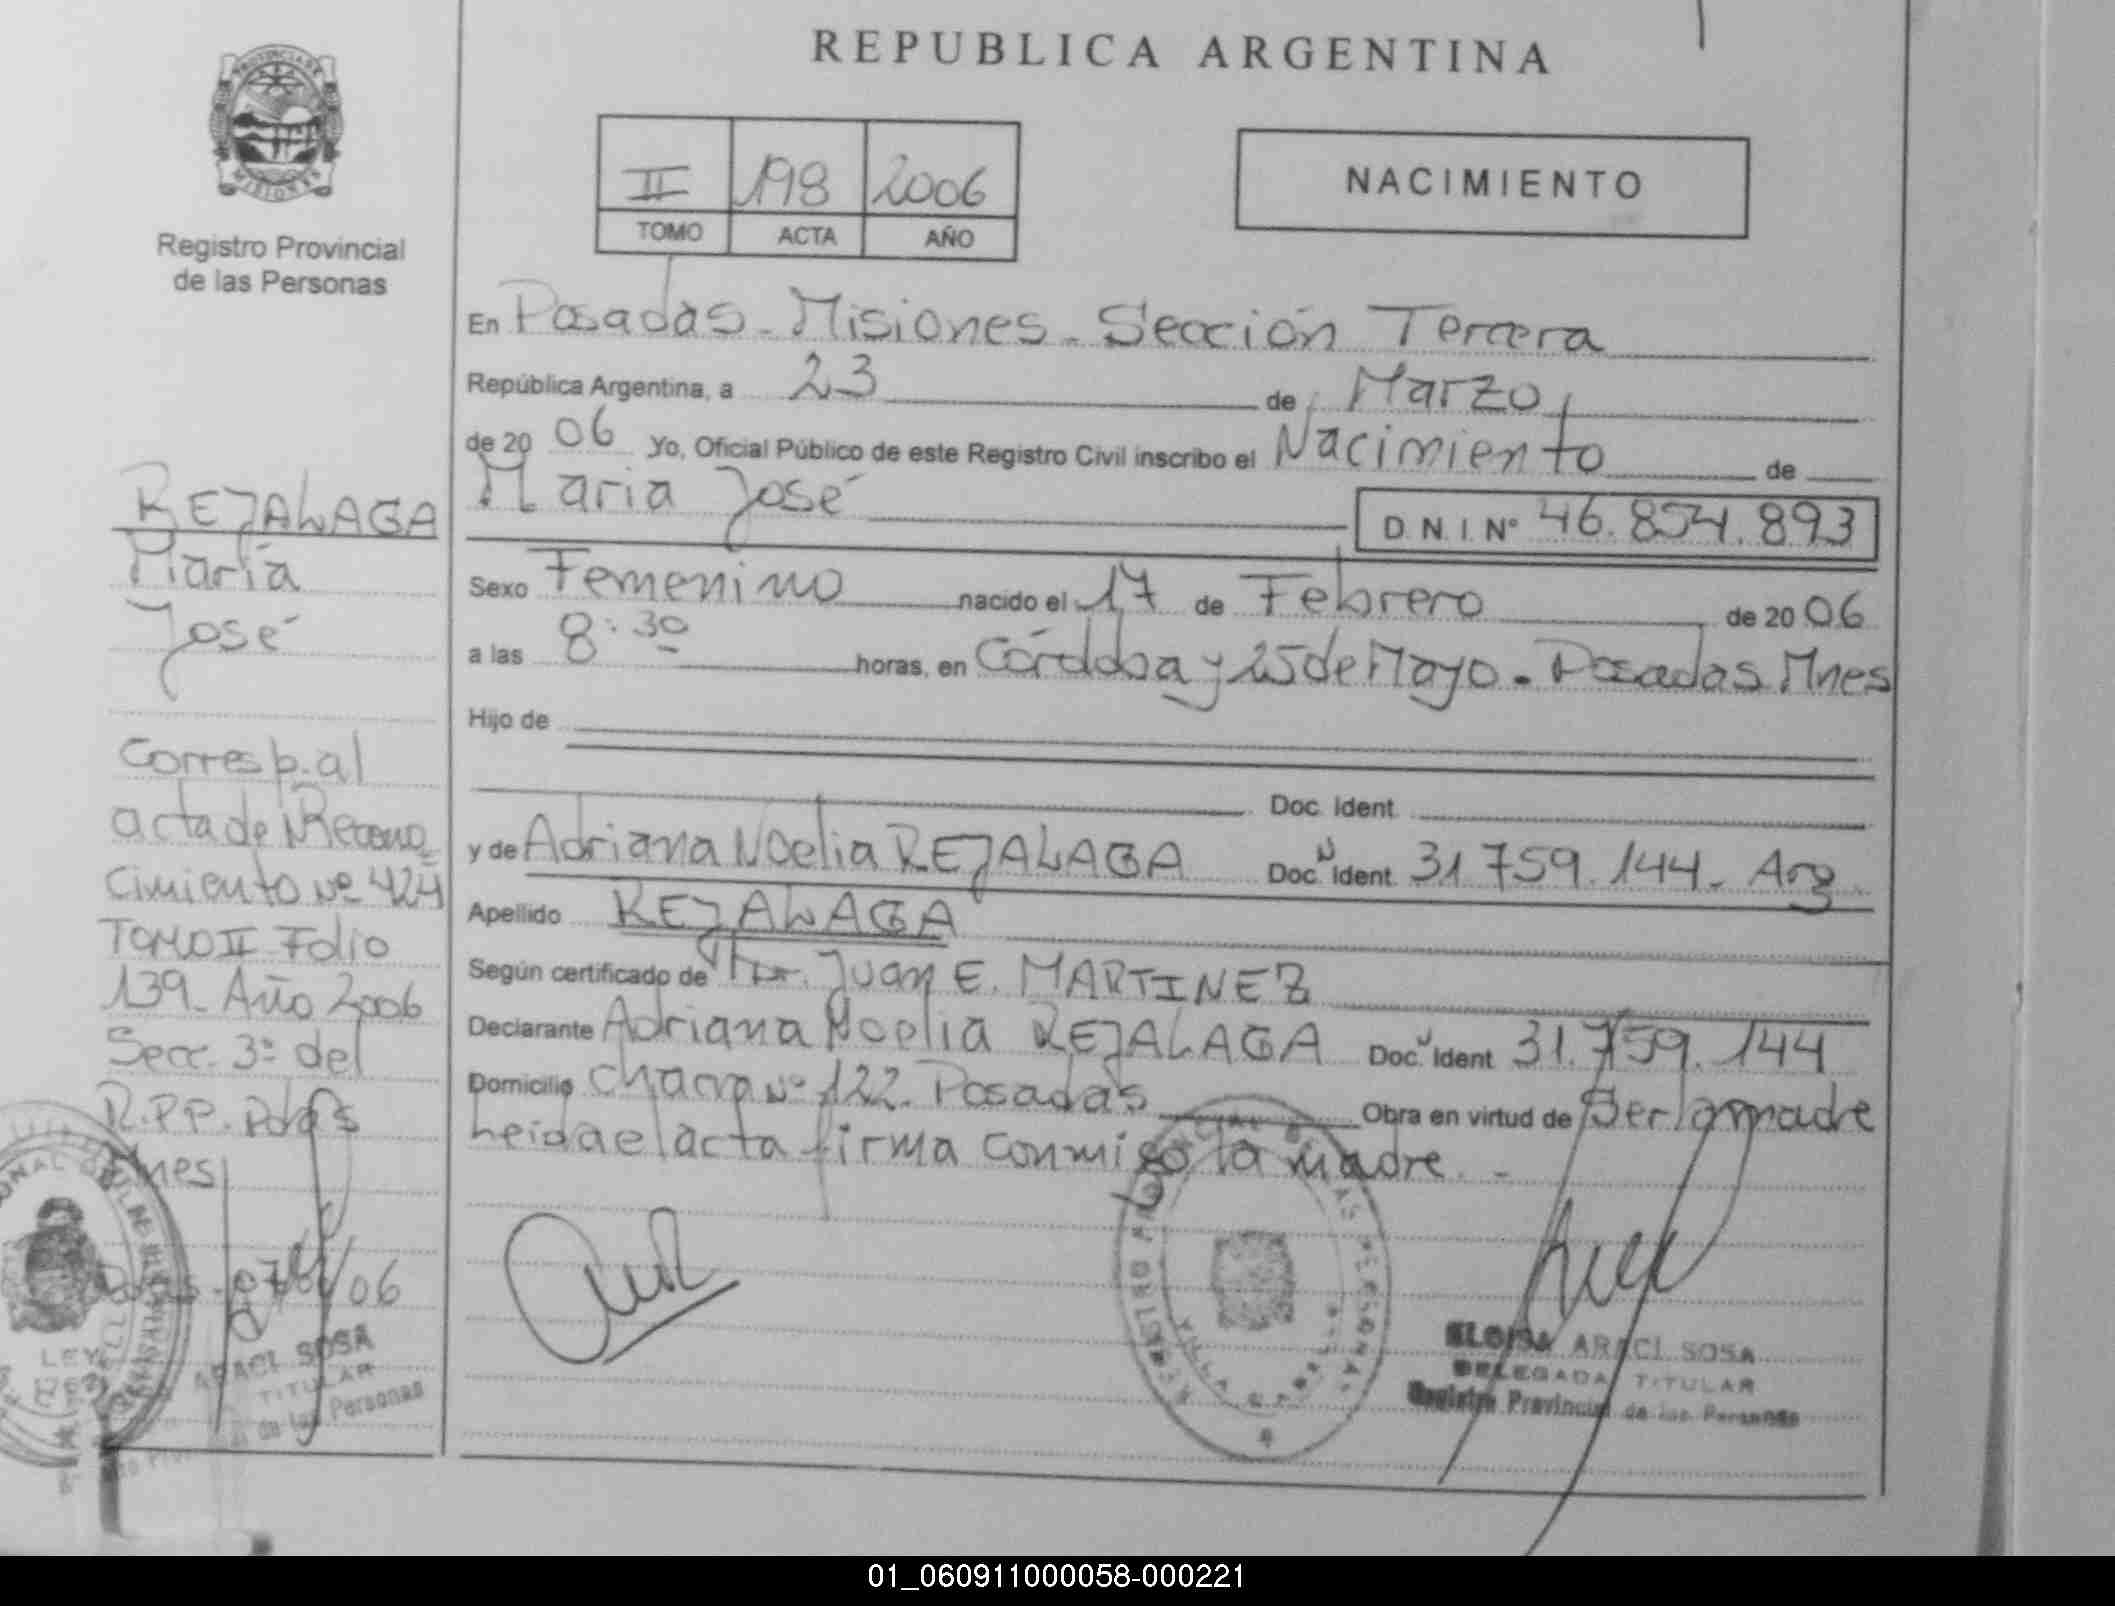 REPUBLICA ARGENTINA
PROVINCIA DE
MISIONES
Registro Provincial
de las Personas
II 198 2006
TOMO ACTA AÑO
NACIMIENTO
En Posadas - Misiones - Sección Tercera
República Argentina, a 23 de Marzo
de 20 06 Yo, Oficial Público de este Registro Civil inscribo el Nacimiento de
Maria José D.N.I. Nº 46.854.893
Sexo Femenino nacido el 17 de Febrero de 20 06
a las 8:30 horas, en Córdoba y 25 de Mayo - Posadas Mnes
Hijo de
Doc. Ident.
y de Adriana Noelia REJALAGA Doc. Ident. 31.759.144 - Arg
Apellido REJALAGA
Según certificado de Dr. Juan E. MARTINEZ
Declarante Adriana Noelia REJALAGA Doc. Ident. 31.759.144
Domicilio chacra Nº 122 - Posadas Obra en virtud de Ser la madre
Leida el acta firma conmigo la madre. -
REJALAGA
María
José
Corresp. al
acta de Recono
cimiento Nº 424
TOMO II Folio
139 - Año 2006
Secc. 3ª del
R.P.P. Pdas
Mnes
06
ARACI SOSA
TITULAR
de las Personas
ELOISA ARACI SOSA
DELEGADA TITULAR
Registro Provincial de las Personas
01_060911000058-000221